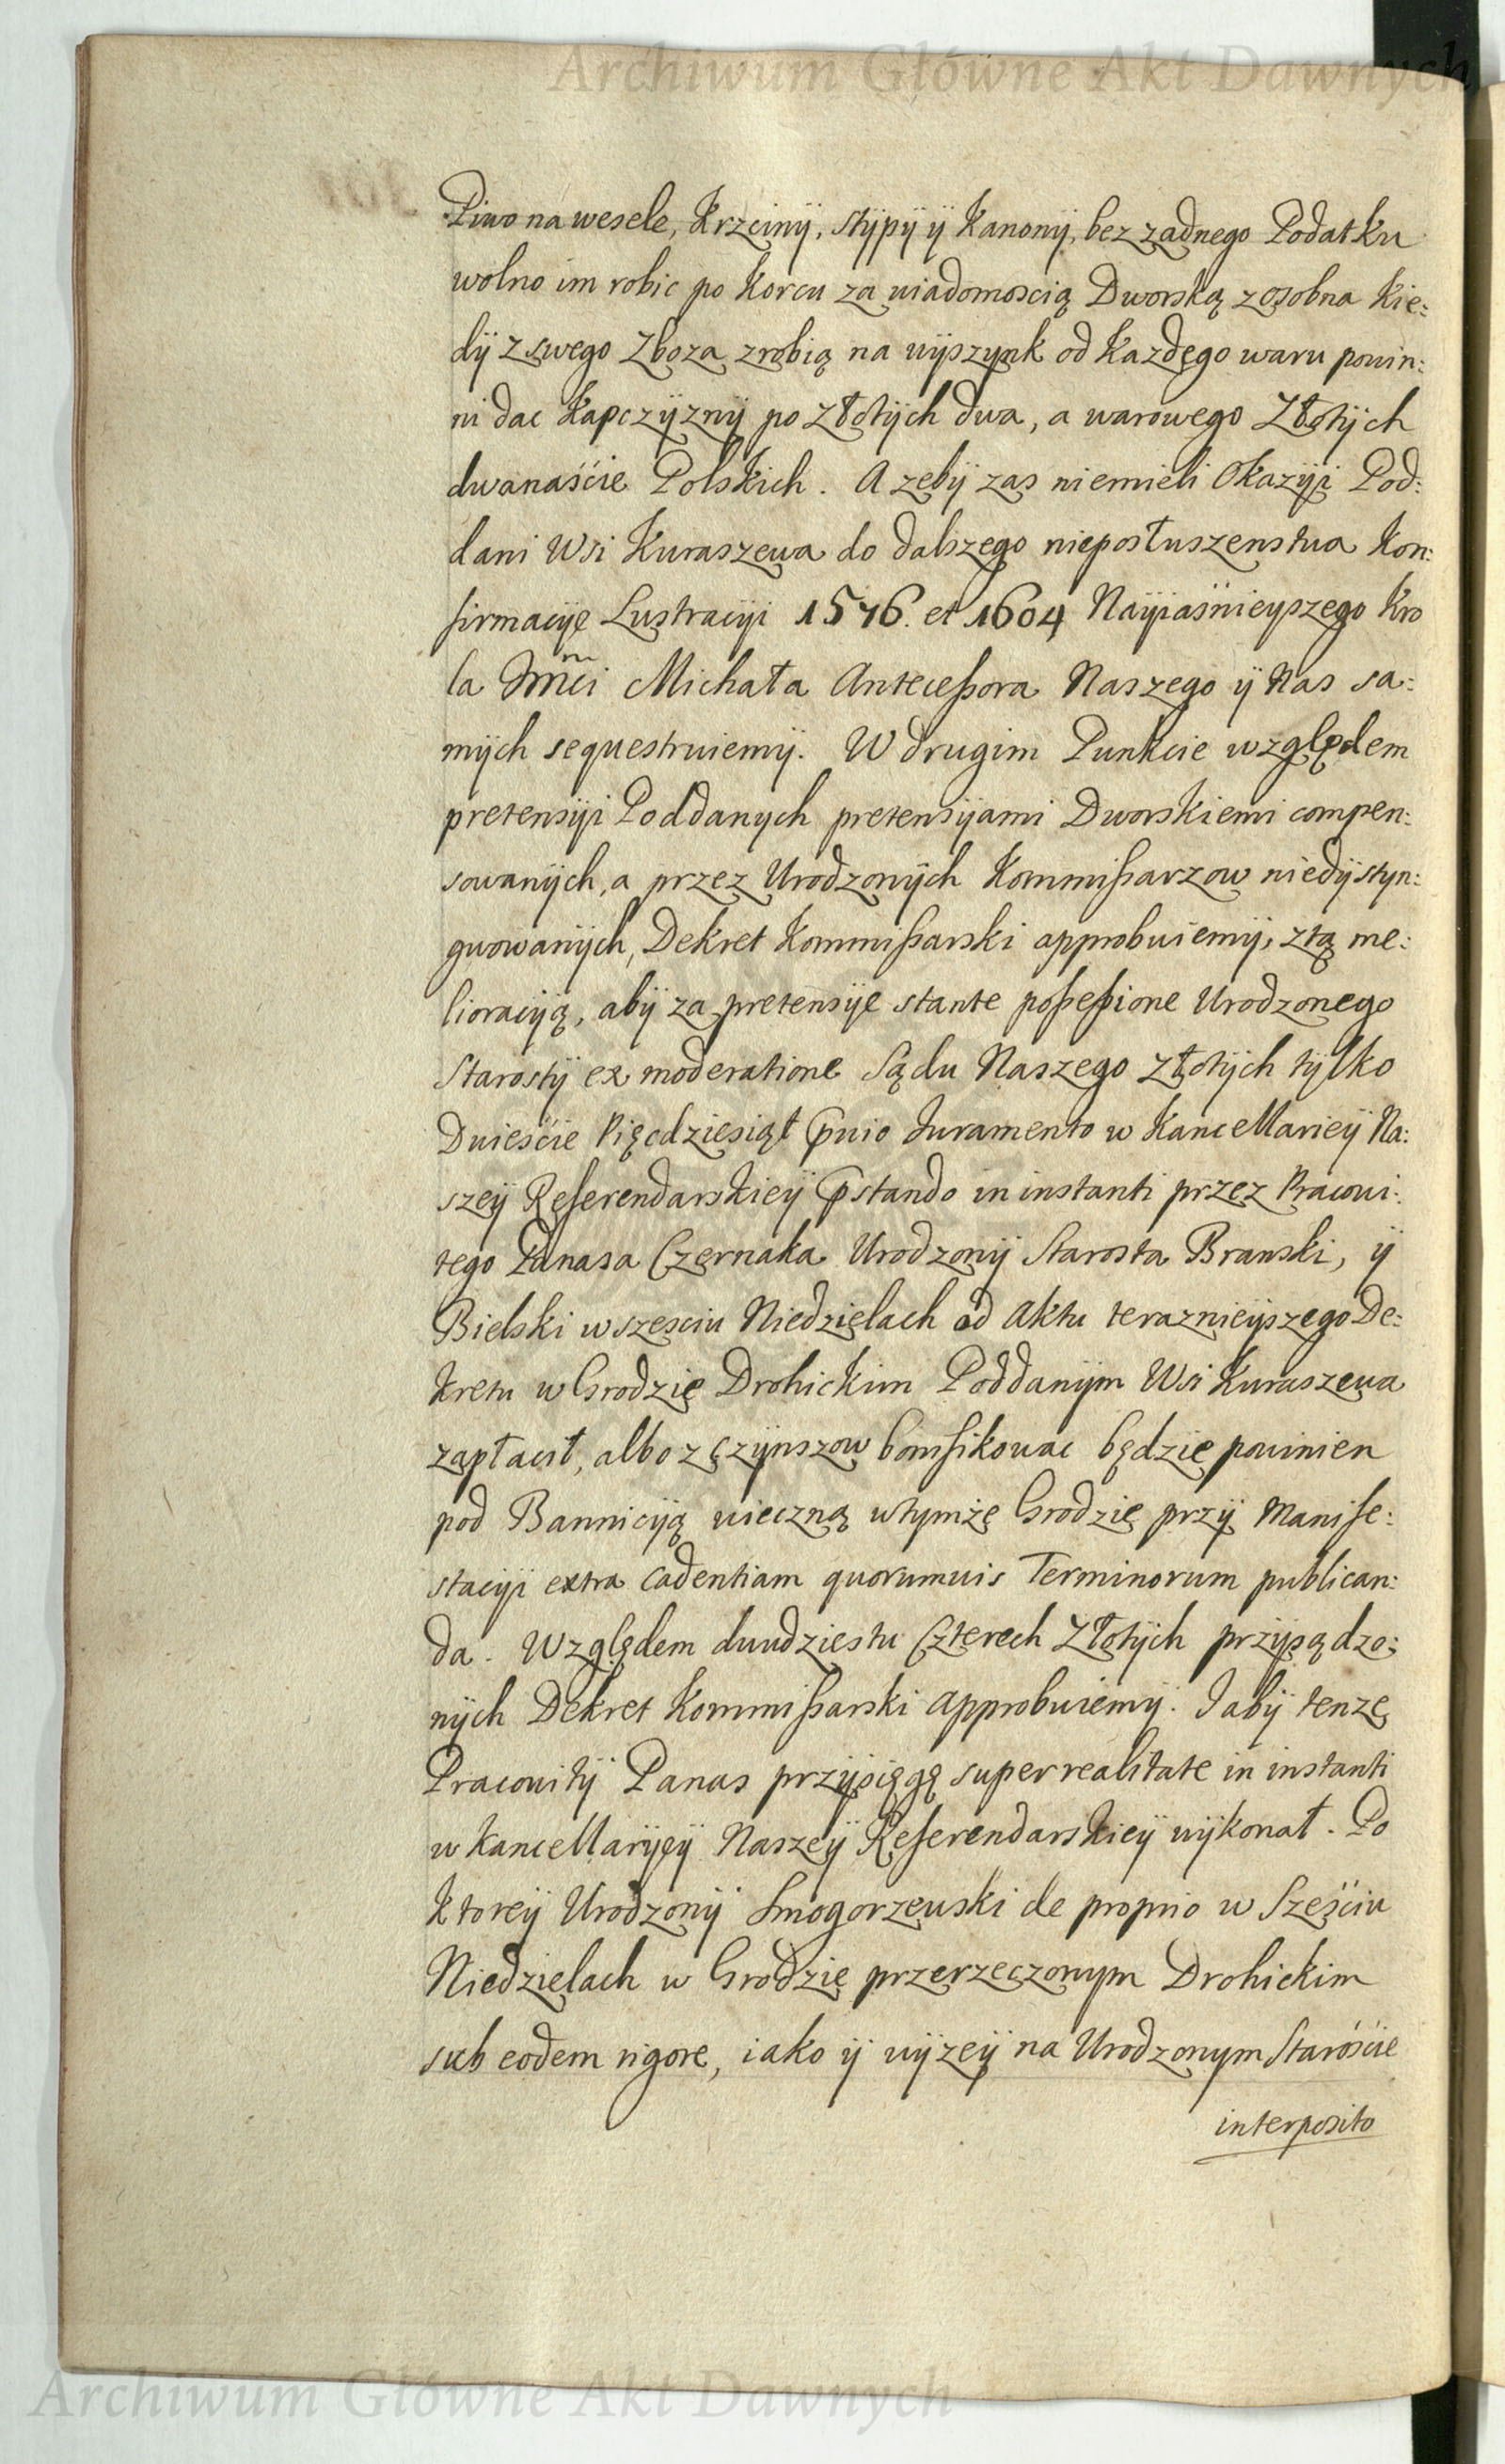 Archiwum Główne Akt Dawnych
Piwo na wesele, Krzciny, Stypy y Kanony, bez zadnego Podatku
wolno im robic po Korcu za wiadomoscią Dworską z osobna Kie:
dy z swego Zboza zrobią na wyszynk od Kazdego waru powin:
ni dac Kapczyzny po Złotych dwa, a warowego Złotych
dwanaście Polskich. A zeby zas niemieli Okazyi Pod:
dani Wsi Kuraszewa do dalszego nieposłuszenstwa Kon:
firmacye Lustracyi 1576. et 1604 Nayiaśnieyszego Kro
la Jmci Michała Antecessora Naszego y Nas sa:
mych sequestruiemy. W drugim Punkcie względem
pretensyi Poddanych pretensyami Dworskiemi compen:
sowanych, a przez Urodzonych Kommissarzow niedystyn:
gwowanych, Dekret Kommissarski approbuiemy, z tą me:
lioracyją, aby za pretensye stante possessione Urodzonego
Starosty ex moderatione Sądu Naszego Złotych tylko
Dwieście Pięcdziesiąt pvio Juramento w Kancellariey Na:
szey Referendarskiey pstando in instanti przez Pracowi:
tego Panasa Czernaka Urodzony Starosta Branski, y
Bielski w szesciu Niedzielach od Aktu teraznieyszego De:
kretu w Grodzie Drohickim Poddanym Wsi Kuraszewa
zapłacił, albo z czynszow bonifikowac będzie powinien
pod Bannicyją wieczną w tymże Grodzie przy Manife:
stacyi extra cadentiam quorumvis Terminorum publican:
da. Względem dwudziestu Czterech Złotych przysądzo:
nych Dekret Kommissarski approbuiemy. I aby tenze
Pracowity Panas przysięgę super realitate in instanti
w Kancellaryey Naszey Referendarskiey wykonał. Po
Ktorey Urodzony Smogorzewski de proprio w Sześciu
Niedzielach w Grodzie przerzeczonym Drohickim
sub eodem rigore, iako y wyzey na Urodzonym Staroście
interposito
Archiwum Główne Akt Dawnych